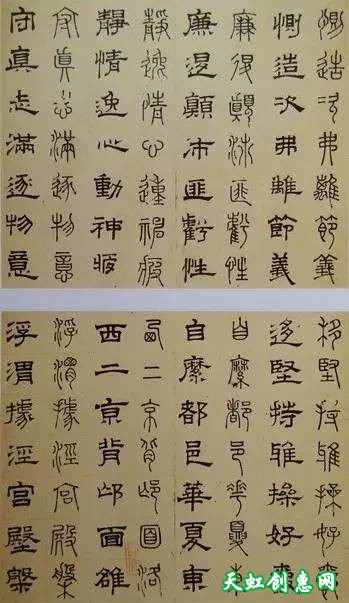 惻造次弗離節義
惻造次弗離節義
廉退顛沛匪虧性
廉退顛沛匪虧性
靜逸情心動神疲
靜情逸心動神疲
守真志滿逐物意
守真志滿逐物意
移堅持雅操好爵
移堅持雅操好爵
自縻都邑華夏東
自縻都邑華夏東
西二京背邙面洛
西二京背邙面雒
浮渭據涇宮殿槃
浮渭據涇宮殿槃
天虹创惠网